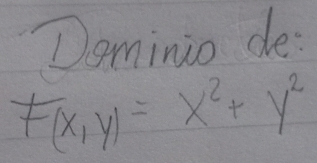 Dominio de:
F(x,y) = x² + y²